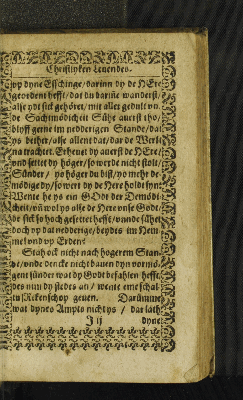 Christlyken Leuendes.
vp dyne Esschinge / darinn dy de HEre
geordent hefft / dat du darine wanderst /
alse ydt sick gehöret / mit aller gedult vn
de Sachtmödicheit Sühe auerst tho /
blyff gerne im nedderigen Stande / dat
ys bether / alse allent dat / dar de Werlt
na trachtet. Erheuet dy auerst de HEre /
vnd settet dy höger / so werde nicht stolt
Sünder / yo höger du bist / yo mehr de-
mödige dy / so wert dy de Here holdt syn:
Wente he ys ein Godt der Demödi-
cheit / vñ wol ys alse de Here vnse Godt:
de sick so hoch gesettet hefft / vnde sühet
doch vp dat nedderige / beydes im Hem
mel vnd vp Erden?
Stah ock nicht nach hogerem Stan-
de / vnde dencke nicht bauen dyn vormö-
gent sünder wat dy Godt befahlen hefft
des nim dy stedes an / wente
geuen. Darümme
wat dynes Ampts nicht ys / dar lath
J ij
dyne